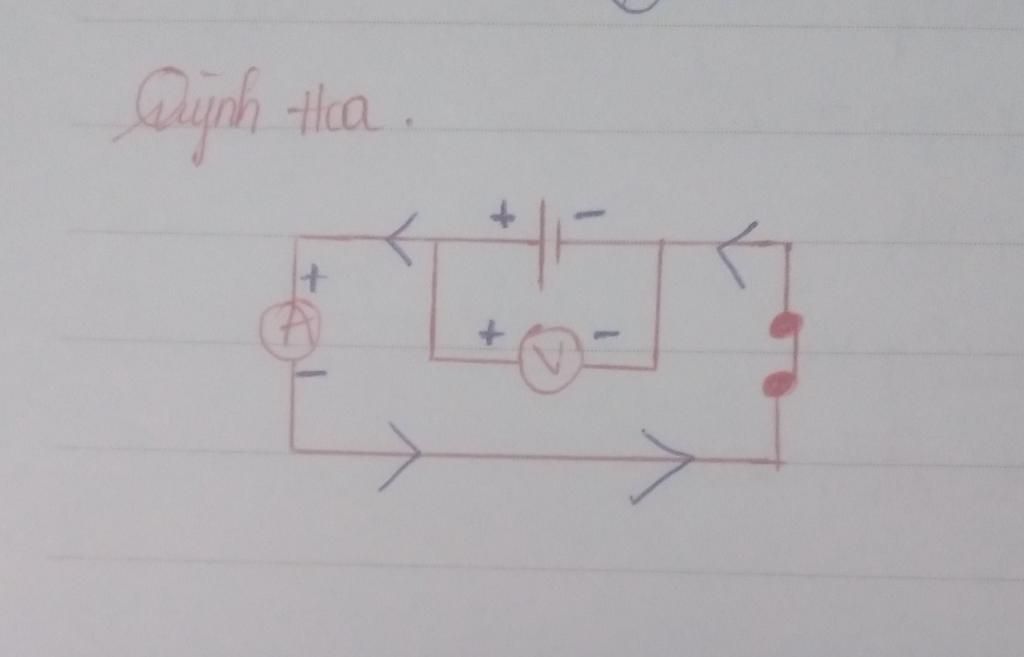 Quỳnh Hoa.
+ -
+
+ -
A
V
-